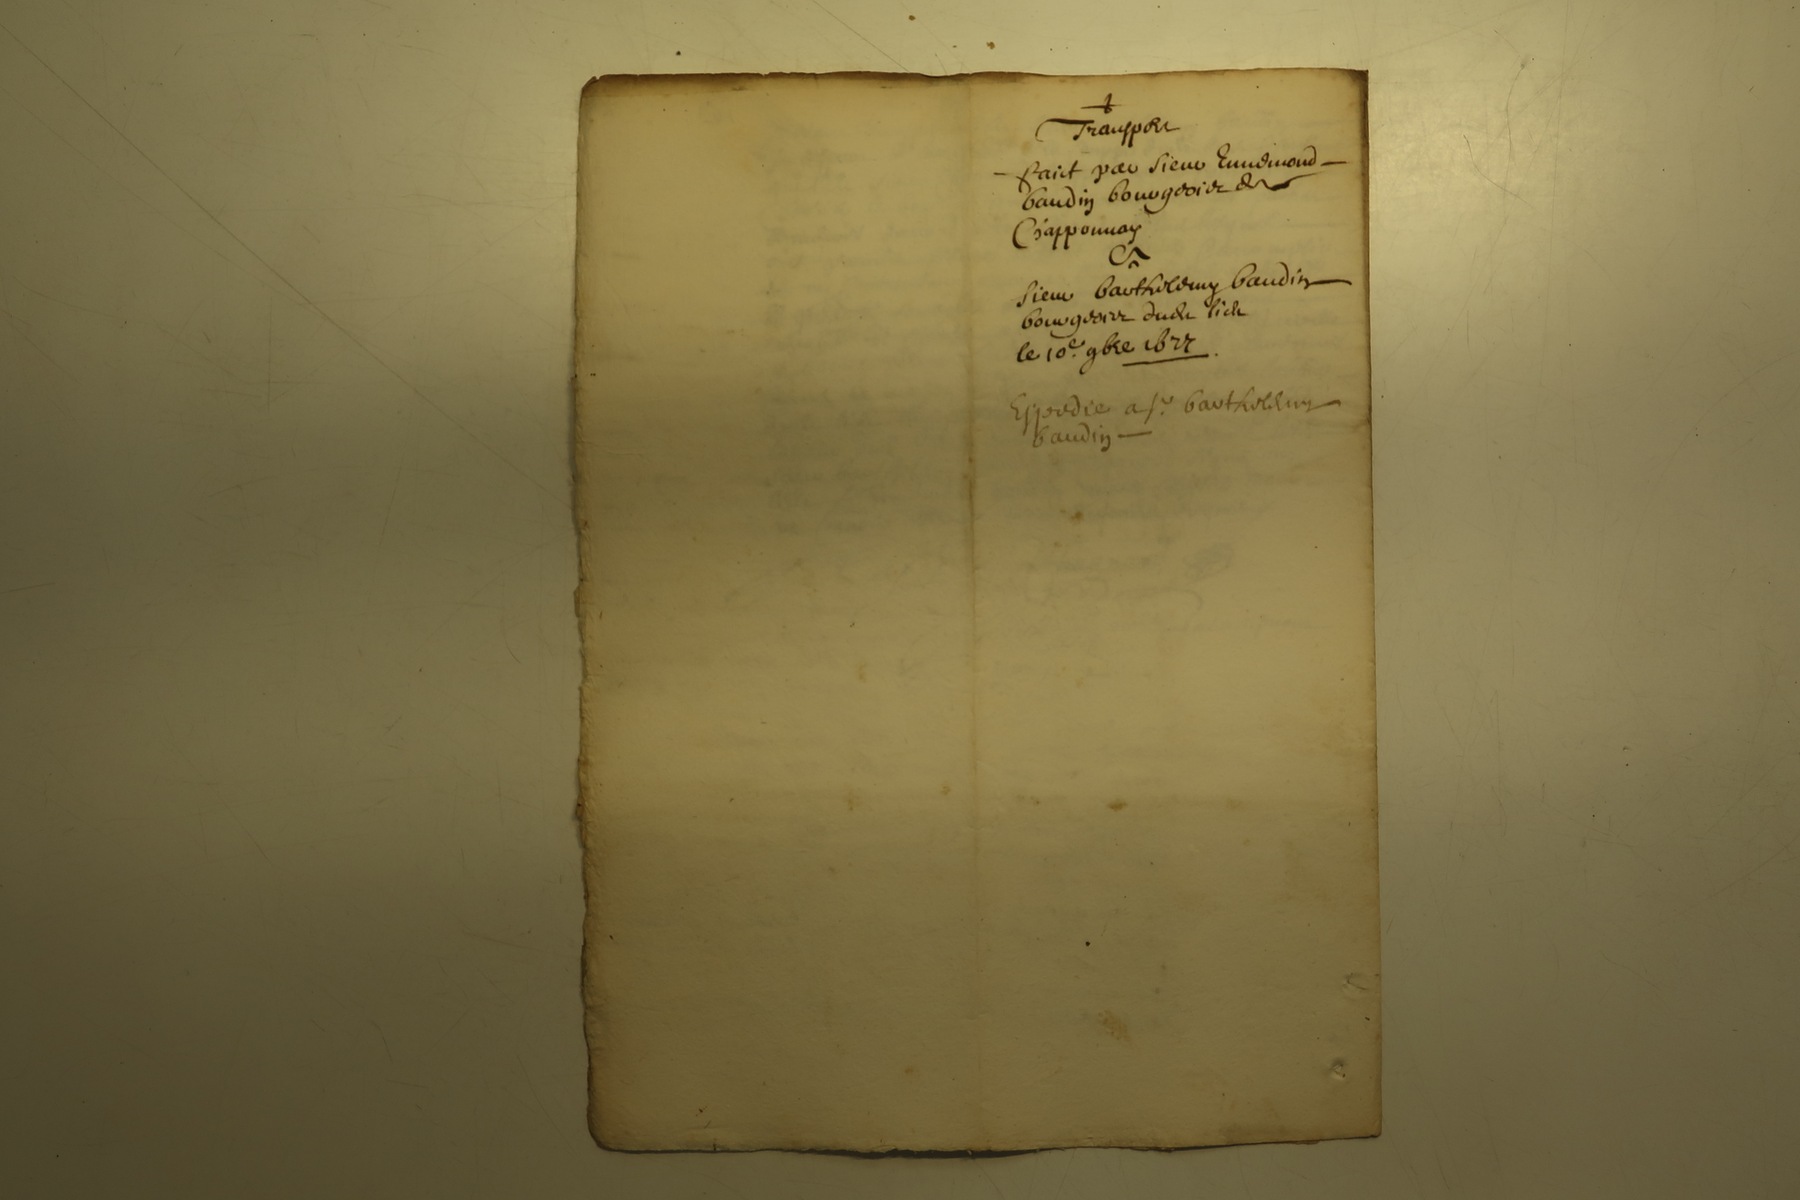 Transport
faict par sieur Ennemond
baudin bourgeoier de
Chapponnay
A
sieur barthelemy baudin
bourgeoier dudit lieu
le 10e. 9bre 1677
Expedie a sr barthelemy
baudin